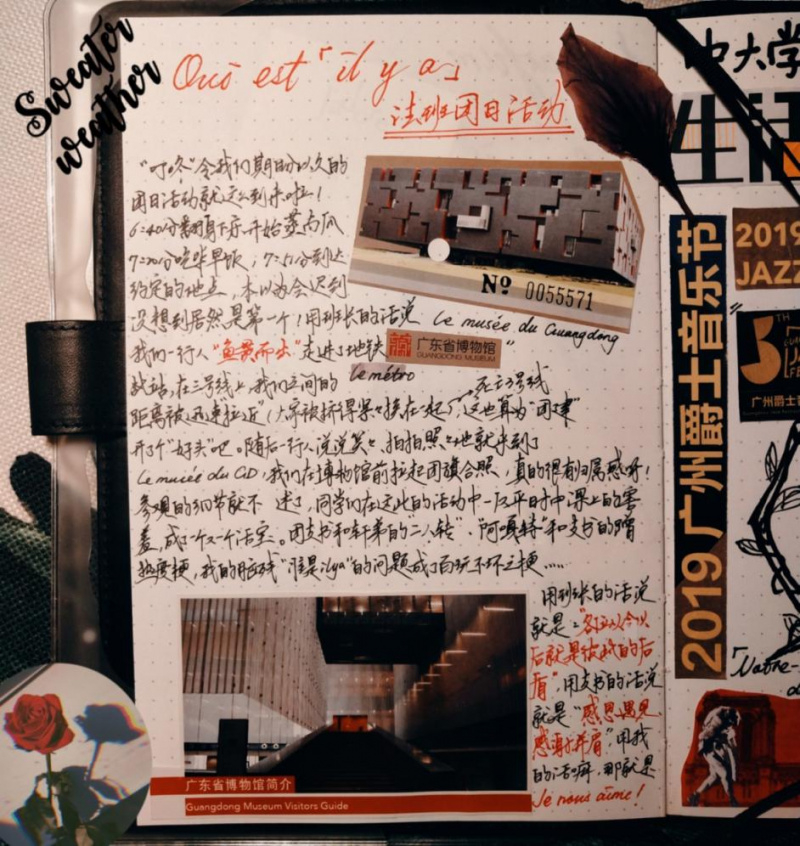 Sweater
weather
Où est「il y a」
法班团日活动
"叮咚"令我们期盼以久的
团日活动就这么到来啦！
6:40分翻身下床开始蒸南瓜
7:20分吃毕早饭，7:51分到达
约定的地点，本以为会迟到
没想到居然是第一个！用班长的话说
Nº 0055571
Le musée du Guangdong
我们一行人"鱼贯而出"走进了地铁
广东省博物馆
GUANGDONG MUSEUM
le métro
战站，在三号线上，我们之间的
死亡3号线
距离被迅速"拉近"（大家被挤得紧紧挨在一起），这也算为"团建"
开了个"好头"吧。随后一行人说说笑笑、拍拍照照地就来到了
Le musée du GD，我们在博物馆前拉起团旗合照，真的很有归属感呀！
参观的细节就不 述了，同学们在这此的活动中一反平时中课上的零
羞，成了一个又一个活宝。团支书和轩弟的"二人转"、"阿嘎特"和支书的
热度梗，我的脑残"谁是ilya"的问题成了百玩不坏之梗……
用班长的话说
就是："各位从今以
后就是彼此的后
盾"，用支书的话说
就是"感恩遇见
感谢并肩"，用我
的话嘛，那就是
Je nous aime!
广东省博物馆简介
Guangdong Museum Visitors Guide
中大学
生活
2019广州爵士音乐节
2019
JAZZ
广州爵士音
「Notre-